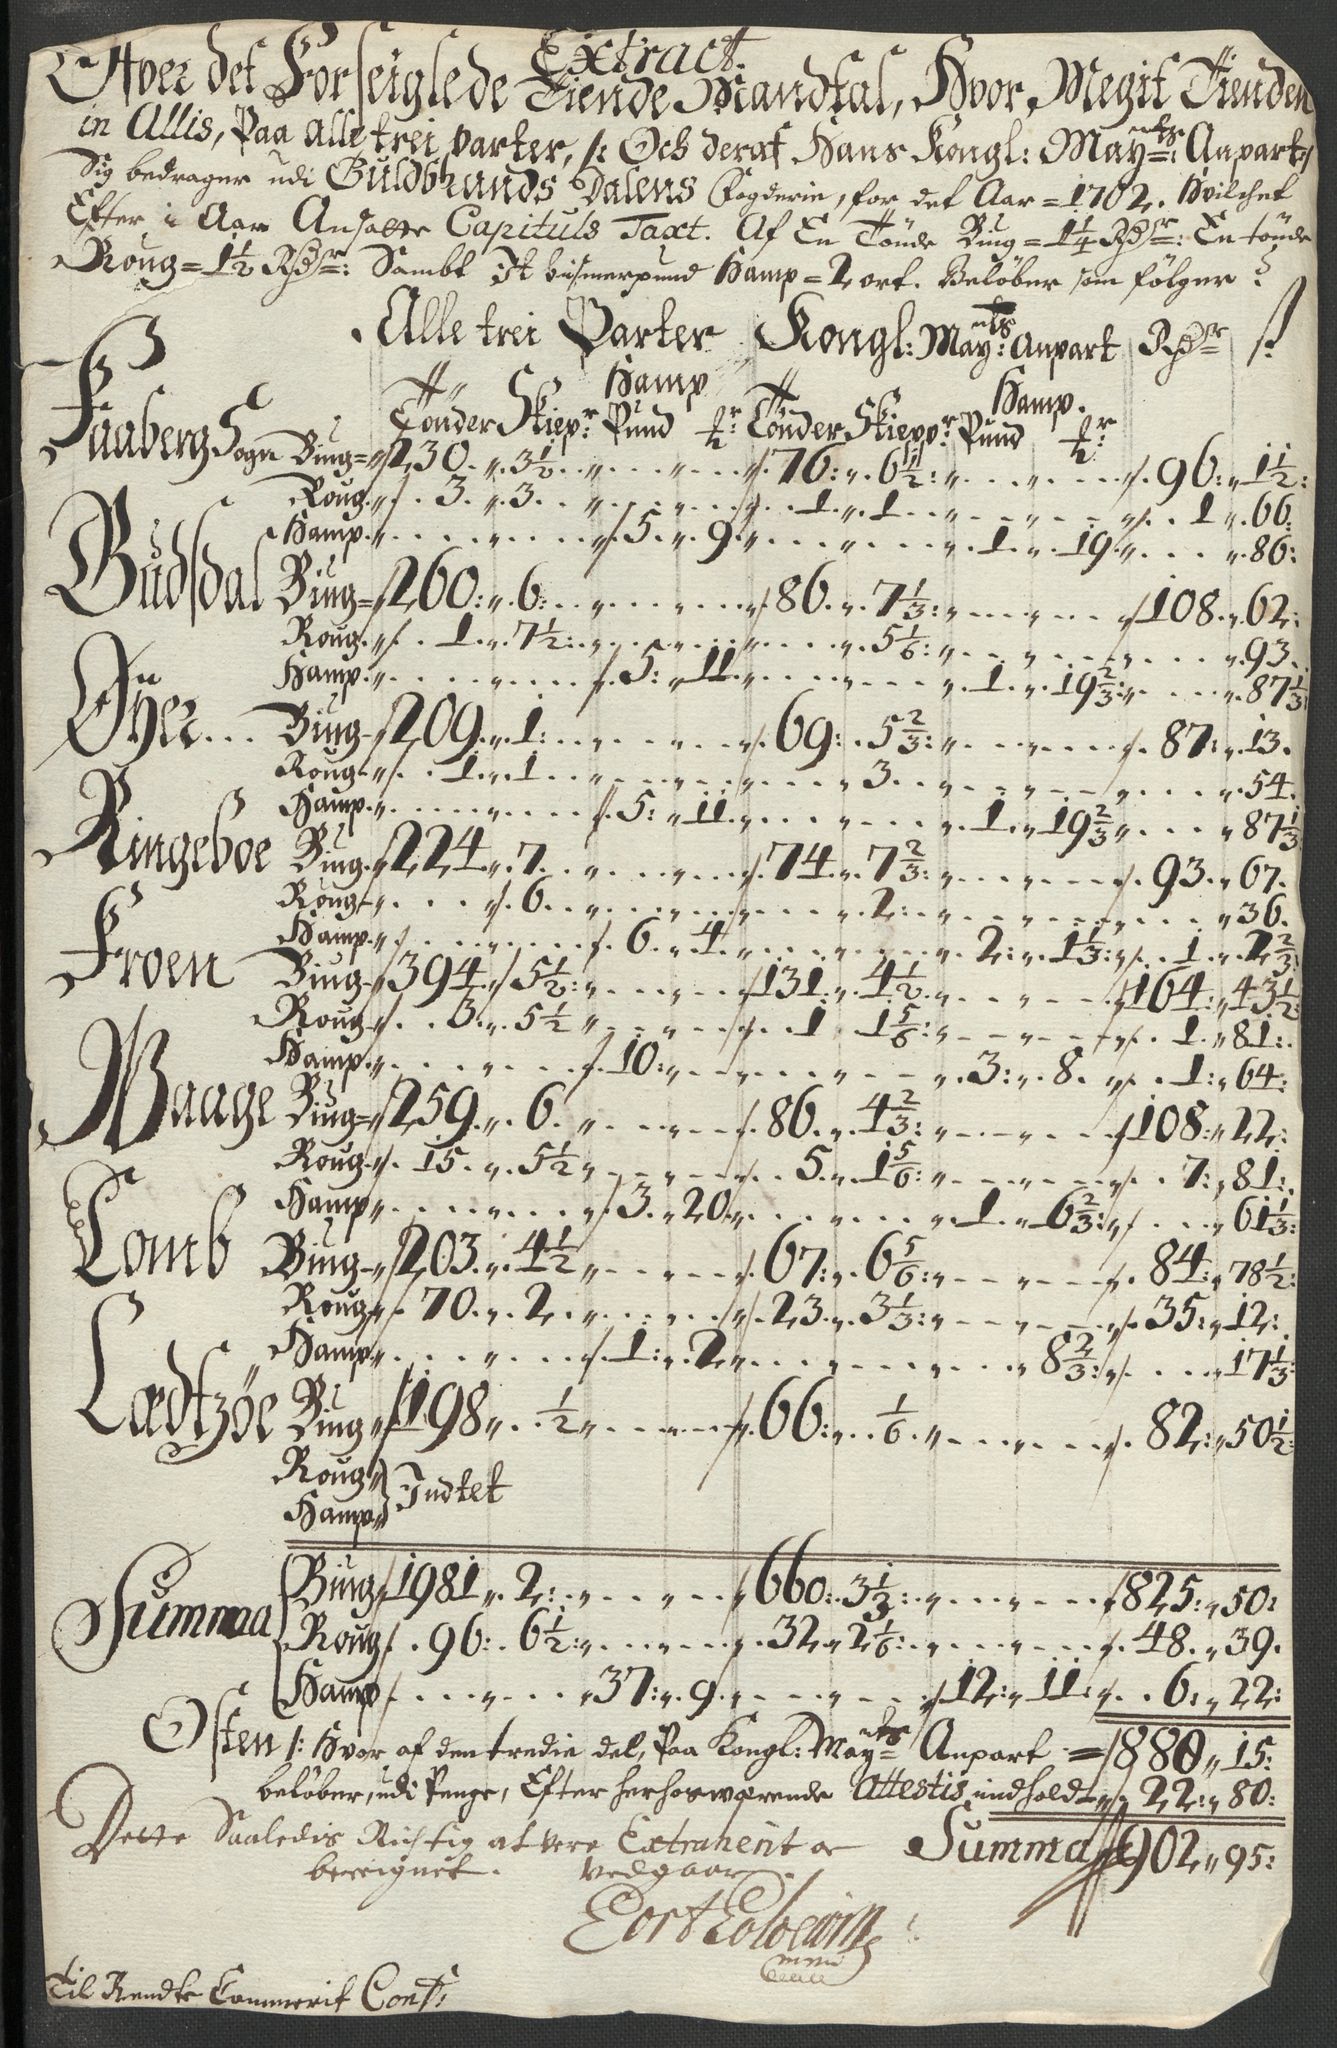 Extract.
Ofver det Forseiglede Tiende Mandtal, Hvor Megit Tienden
in Allis, Paa Alle trei parter, /: Och deraf Hans Kongl: May:ts Anpart :/
Sig bedrager udi Guldbrands Dalens Fogderie, for det Aar = 1702. Hvilchet
Efter i Aar Ansatte Capituls Taxt. Af En Tönde Biug = 1 1/4 Rdr: En tönde
Roug = 1 1/2 Rdr: Sambt It bismerpund Hamp = 2 ort. Belöber som fölger
Alle trei Parter Kongl: May:ts Anpart Rdr ß
Hamp Hamp.
Tönder Skiepr: Pund Tönder Skieppr: Pund
Faaberg Sogn Biug = 230 3 1/2 76 6 1/2 96 1 1/2
Roug 3 3 1 1 1 66
Hamp 5 9 1 19 86
Gudsdal Biug = 260 6 86 7 1/3 108 62
Roug 1 7 1/2 5 1/6 93
Hamp 5 11 1 19 2/3 87 1/3
Öyer Biug 209 1 69 5 2/3 87 13
Roug 1 1 3 54
Hamp 5 11 1 19 2/3 87 1/3
Ringeboe Biug 224 7 74 7 2/3 93 67
Roug 6 2 36
Hamp 6 4 2 1 1/3 1 2 2/3
Froen Biug 394 5 1/2 131 4 1/2 164 43 1/2
Roug 3 5 1/2 1 1 5/6 1 81
Hamp 10 3 8 1 64
Waage Biug = 259 6 86 4 2/3 108 22
Roug 15 5 1/2 5 1 5/6 7 81
Hamp 3 20 1 6 2/3 61 1/3
Lomb Biug 203 4 1/2 67 6 5/6 84 78 1/2
Roug 70 2 23 3 1/3 35 12
Hamp 1 2 8 2/3 17 1/3
Lædtzöe Biug 198 1/2 66 1/6 82 50 1/2
Roug
Hamp Indtet
Summa Biug 1981 2 660 3 1/3 825 50
Roug 96 6 1/2 32 2 1/6 48 39
Hamp 37 9 12 11 6 22
Osten /: Hvor af den tredie del, Paa Kongl: May:ts Anpart = 880 15
belöber, udi Penge, Efter herhosværende Attestis indhold 22 80
Dette Saaledis Richtig at vere Extrahent og Summa 902 95
bereignet. Vedgaar
Til Rendte Cammerit Cont: